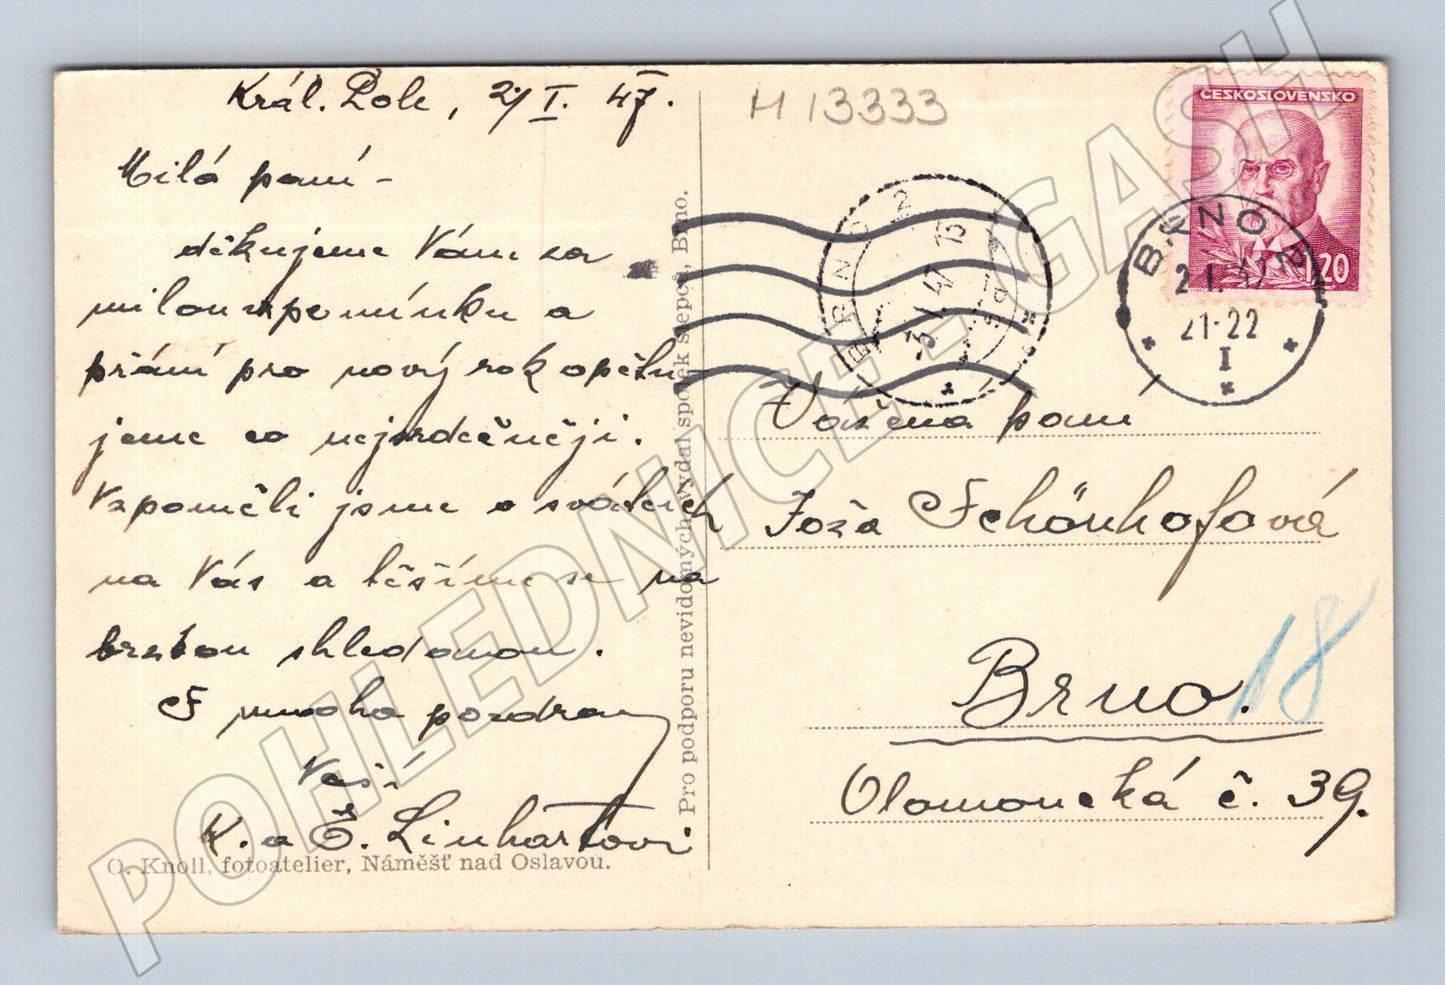 Král. Pole, 2/I. 47.
Milá paní –
děkujeme Vám za
milou vzpomínku a
přání pro nový rok opětu-
jeme co nejsrdečněji.
Vzpoměli jsme o svátcích
na Vás a těšíme se na
brzkou shledanou.
S mnoha pozdravy
Vaši
K. a E. Linhartovi
O. Knoll, fotoatelier, Náměšť nad Oslavou.
Pro podporu nevidomých vydal spolek slepců, Brno.
H 13333
ČESKOSLOVENSKO
1.20
BRNO 2
2. I. 47
21-22
I
BRNO 2
Vážená paní
Joža Schönhofová
Brno.
18
Olomoucká č. 39.
POHLEDNICE-GASH